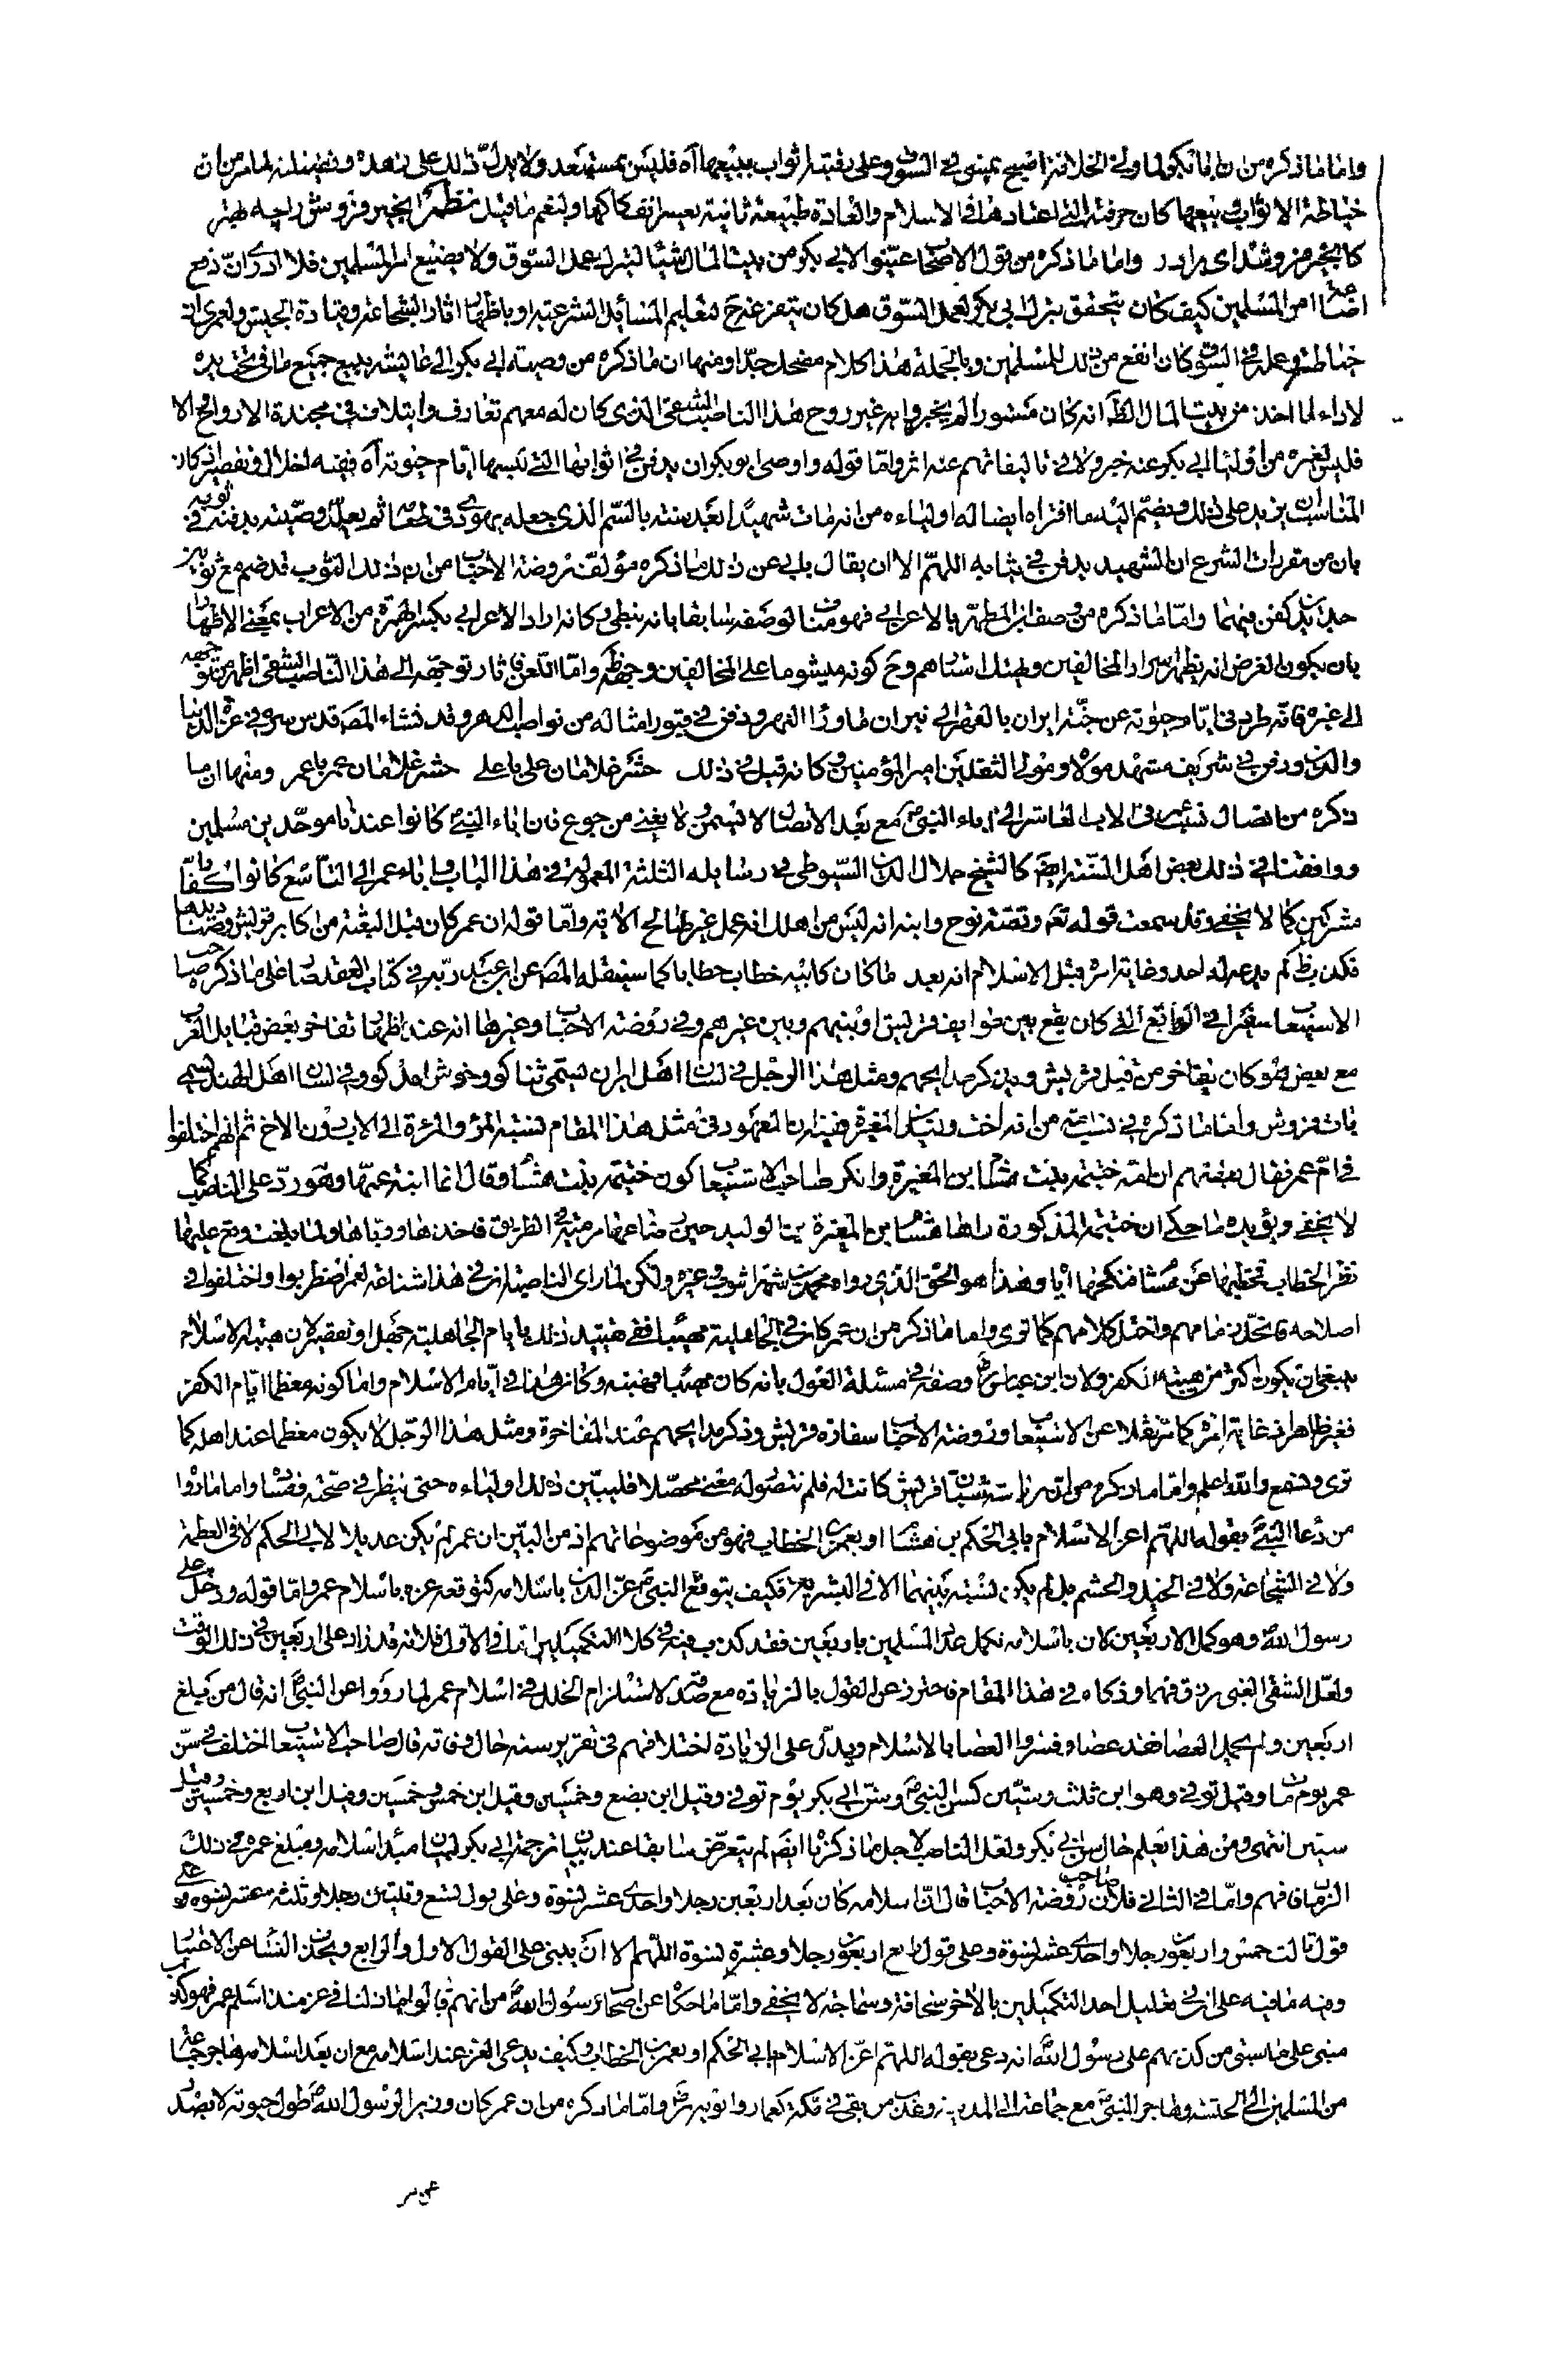 واما ما ذكره من ان ابا بكر لما ولى الخلافة اصبح يمشى فى السوق وعلى رقبته اثواب يبيعها آه فليس بمستبعد ولا يدل ذلك على زهده وفضيلته لما مر من ان
خياطة الاثواب وبيعها كان حرفته التى اعتاد بها فى الاسلام والعادة طبيعة ثانية يعسر انفكاكها ولنعم ما قيل نظم اى خيز فروش را چه
واما ما ذكره من قول الاصحاب عينوا لابى بكر من بيت المال شيئا ليترك عمل السوق ولا يضيع امر المسلمين فلا ادرى ان
امر المسلمين كيف كان يتحقق بترك ابى بكر لعمل السوق هل كان يتفرغ ح لتعليم المسائل الشرعية او باظهار اثار الشجاعة وقيادة الجيش ولعمرى ان
خياطته وعمله فى السوق كان انفع من ذلك للمسلمين وبالجملة هذا كلام مضحك جدا ومنها ان ما ذكره من وصية ابى بكر الى عايشه ببيع جميع ما فى تحت يده
لاداء لما اخذ من بيت المال الظ انه كان مستورا لم يخبر به غير روح هذا الناصب الشقى الذى كان له معهم تعارف وايتلاف فى مجندة الارواح والا
فليس لغيره من اولياء ابى بكر عنه خبر ولا فى تاليفاتهم عنه اثر واما قوله واوصى ابو بكر ان يدفن فى اثوابها التى تلبسها ايام حيوته آه ففيه اخلال وتقصير اذ كان
المناسب ان يزيد على ذلك ويضم اليه ما افتراه ايضا له اولياءه من انه مات شهيدا بعد سنة بالسم الذى جعله يهودى فى طعامه ثم يعلل وصيته بدفنه فى ثوبيه
بان من مقررات الشرع ان الشهيد يدفن فى ثيابه اللهم الا ان يقال يابى عن ذلك ما ذكره مؤلف روضة الاحباب من ان ذلك الثوب قد ضم مع ثوبين
جديدين كفن فيهما واما ما ذكره من وصف ابن المطهر بالاعرابى فهو مناف لوصفه سابقا بانه نبطى وكانه اراد الاعرابى بكسر الهمزة من الاعراب بمعنى الاظهار
بان يكون الغرض انه يظهر اسرار المخالفين ويهتك استارهم وح كونه ميشوما على المخالفين وجهه ظ واما اللعن فاثار توجهه الى هذا الناصب الشقى اظهر من توجهه
الى غيره فانه طرد فى ايام حيوته عن جنة ايران بالفقر الى نيران ماوراء النهر ودفن فى قبور امثاله من نواصب الدهر وقد نشاء المص قدس سره فى عزة الدنيا
والدين ودفن فى شريف مشهد مولاه ومولى الثقلين امير المؤمنين وكانه قيل فى ذلك حشر غلامان على با على حشر غلامان عمر با عمر ومنها ان ما
ذكره من اتصال نسب عمر فى الاب العاشر الى اباء النبى ص مع بعد الاتصال لا يسمن ولا يغنى من جوع فان اباء النبى كانوا عندنا موحدين مسلمين
ووافقنا فى ذلك بعض اهل السنة ايض كالشيخ جلال الدين السيوطى فى رسايله الثلثة المعمولة فى هذا الباب واباء عمر الى التاسع كانوا كفارا
مشركين كما لا يخفى وقد سمعت قوله تعه وقصة نوح وابنه انه ليس من اهلك انه عمل غير صالح الاية واما قوله ان عمر كان قبل البعثة من اكابر قريش وصناديدها
فكذب ظ لم يدعه له احد وغاية امره قبل الاسلام انه بعد ما كان كابيه خطاب حطابا كما سينقله المص عن ابن عبد ربه فى كتاب العقد صار على ما ذكره صاحب
الاستيعاب سفيرا فى الوقايع التى كان يقع بين طوايف قريش او بينهم وبين غيرهم وفى روضة الاحباب وغيرها انه عند اظهار تفاخر بعض قبايل العرب
مع بعض هو كان يتفاخر من قبل قريش ويذكر مدايحهم ومثل هذا الرجل فى لسان اهل ايران يسمى ثناكو وخوش امدكو وفى لسان اهل الهند يسمى
بادفروش واما ما ذكره فى نسب امه من انه اخت وليد بن المغيرة ففيه ان المعهود فى مثل هذا المقام نسبة المرء والمرءة الى الاب دون الاخ ثم انهم اختلفوا
فى ام عمر فقال بعضهم ان امه ختيمه بنت هشام بن المغيرة وانكر صاحب الاستيعاب كون ختيمه بنت هشام وقال انما ابنة عمها وهو رد على الناصب كما
لا يخفى ويؤيده ما حكى ان ختيمة المذكورة راها هشام بن المغيرة بن الوليد حين ضاعها مرمية فى الطريق فاخذها ورباها ولما بلغت وقع عليها
نظر الخطاب فخطبها عن هشام فنكحها اياه وهذا هو الحق الذى رواه محمد بن شهراشوب وغيره ولكن لما راى الناصبة ان فى هذا شناعة لعمر اضطربوا واختلفوا فى
اصلاحه فانحل زمامهم واختل كلامهم كما ترى واما ما ذكره من ان عمر كان فى الجاهلية مهيبا ففى تقييد ذلك بايام الجاهلية جهل او تعقيد لان هيبة الاسلام
ينبغى ان يكون اكثر من هيبة الكفر ولان ابن عباس رض وصفه فى مسئلة العول بانه كان مهيبا فهبته وكان هذا فى ايام الاسلام واما كونه معظما ايام الكفر
فغير ظاهر اذ غاية امره كما مر نقلا عن الاستيعاب وروضة الاحباب سفارة قريش وذكر مدايحهم عند المفاخرة ومثل هذا الرجل لا يكون معظما عند اهله كما
ترى وتسمع والله اعلم واما ما ذكره من ان رياسة شبان قريش كانت له فلم نتصور له معنى محصلا فليبين ذلك اولياءه حتى ينظر فى صحته وفساده واما ما رووا
من دعاء النبى ص بقوله اللهم اعز الاسلام بابى الحكم بن هشام او بعمر بن الخطاب فهو من موضوعاتهم اذ من البين ان عمر لم يكن عديلا لابى الحكم لا فى العظمة
ولا فى الشجاعة ولا فى الخيل والحشم بل لم يكن نسبة بينهما الا فى البشرية فكيف يتوقع النبى ص عز الدين باسلامه كتوقعه عزه باسلام عمر واما قوله ودخل على
رسول الله وهو كمل الاربعين لان باسلامه تكمل عدد المسلمين باربعين فقد كذب فيه فى كلا التكميلين اما فى الاول فلانه قد زاد على اربعين فى ذلك الوقت
ولعل الشقى الغبى رزق فهما وذكاء فى هذا المقام فاحترز عن القول بالزيادة مع صدقه لاستلزام الخلل فى اسلام عمر لما رووا عن النبى انه قال من بلغ
اربعين ولم يحمل العصا فقد عصا وفسروا العصا بالاسلام ويدل على الزيادة اختلافهم فى تقرير سنه حال وفاته قال صاحب الاستيعاب اختلف فى سن
عمر يوم مات وقيل توفى وهو ابن ثلث وستين كسن النبى ص وسن ابى بكر يوم توفى وقيل ابن بضع وخمسين وقيل ابن خمس وخمسين وقيل ابن اربع وخمسين وقيل
ستين انتهى ومن هذا تعلم حال سن ابى بكر ولعل الناصب لاجل ما ذكرنا ايض لم يتعرض سابقا عند بيان ترجمة ابى بكر لبيان مبدا اسلامه ومبلغ عمره فى ذلك
الزمان فافهم واما فى الثانى فلان صاحب روضة الاحباب قال ان اسلامه كان بعد اربعين رجلا واحدى عشر نسوة وعلى قول تسع وثلثين رجلا وثلثه عشر نسوه وعلى
قول ثالث خمس واربعون رجلا واحدى عشر نسوة وعلى قول رابع اربعون رجلا وعشرة نسوة اللهم الا ان يبنى على القول الاول والرابع ويحذف النساء عن الاعتبار
وفيه ما فيه على ان فى تعليل احد التكميلين بالاخر سخافة وسماجة لا يخفى واما ما حكاه عن اصحاب رسول الله ص من انهم قالوا ما زلنا فى عز منذ اسلم عمر فهو كذب
مبنى على ما سبق من كذبهم على رسول الله انه دعى بقوله اللهم اعز الاسلام بابى الحكم او بعمر بن الخطاب وكيف يدعى العز عند اسلامه مع ان بعد اسلامه هاجر جماعة
من المسلمين الى الحبشه وهاجر النبى ص مع جماعة الى المدينة وعذب من بقى فى مكة كعمار وابويه رض واما ما ذكره من ان عمر كان وزير الرسول الله ص طول حيوته لا يصدر
عن